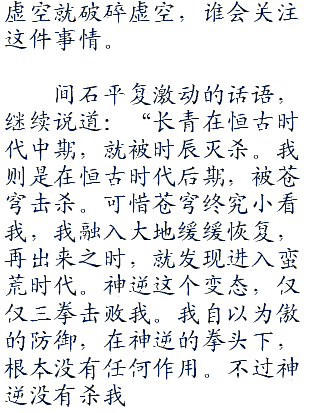 虚空就破碎虚空，谁会关注
这件事情。
间石平复激动的话语，
继续说道：“长青在恒古时
代中期，就被时辰灭杀。我
则是在恒古时代后期，被苍
穹击杀。可惜苍穹终究小看
我，我融入大地缓缓恢复，
再出来之时，就发现进入蛮
荒时代。神逆这个变态，仅
仅三拳击败我。我自以为傲
的防御，在神逆的拳头下，
根本没有任何作用。不过神
逆没有杀我